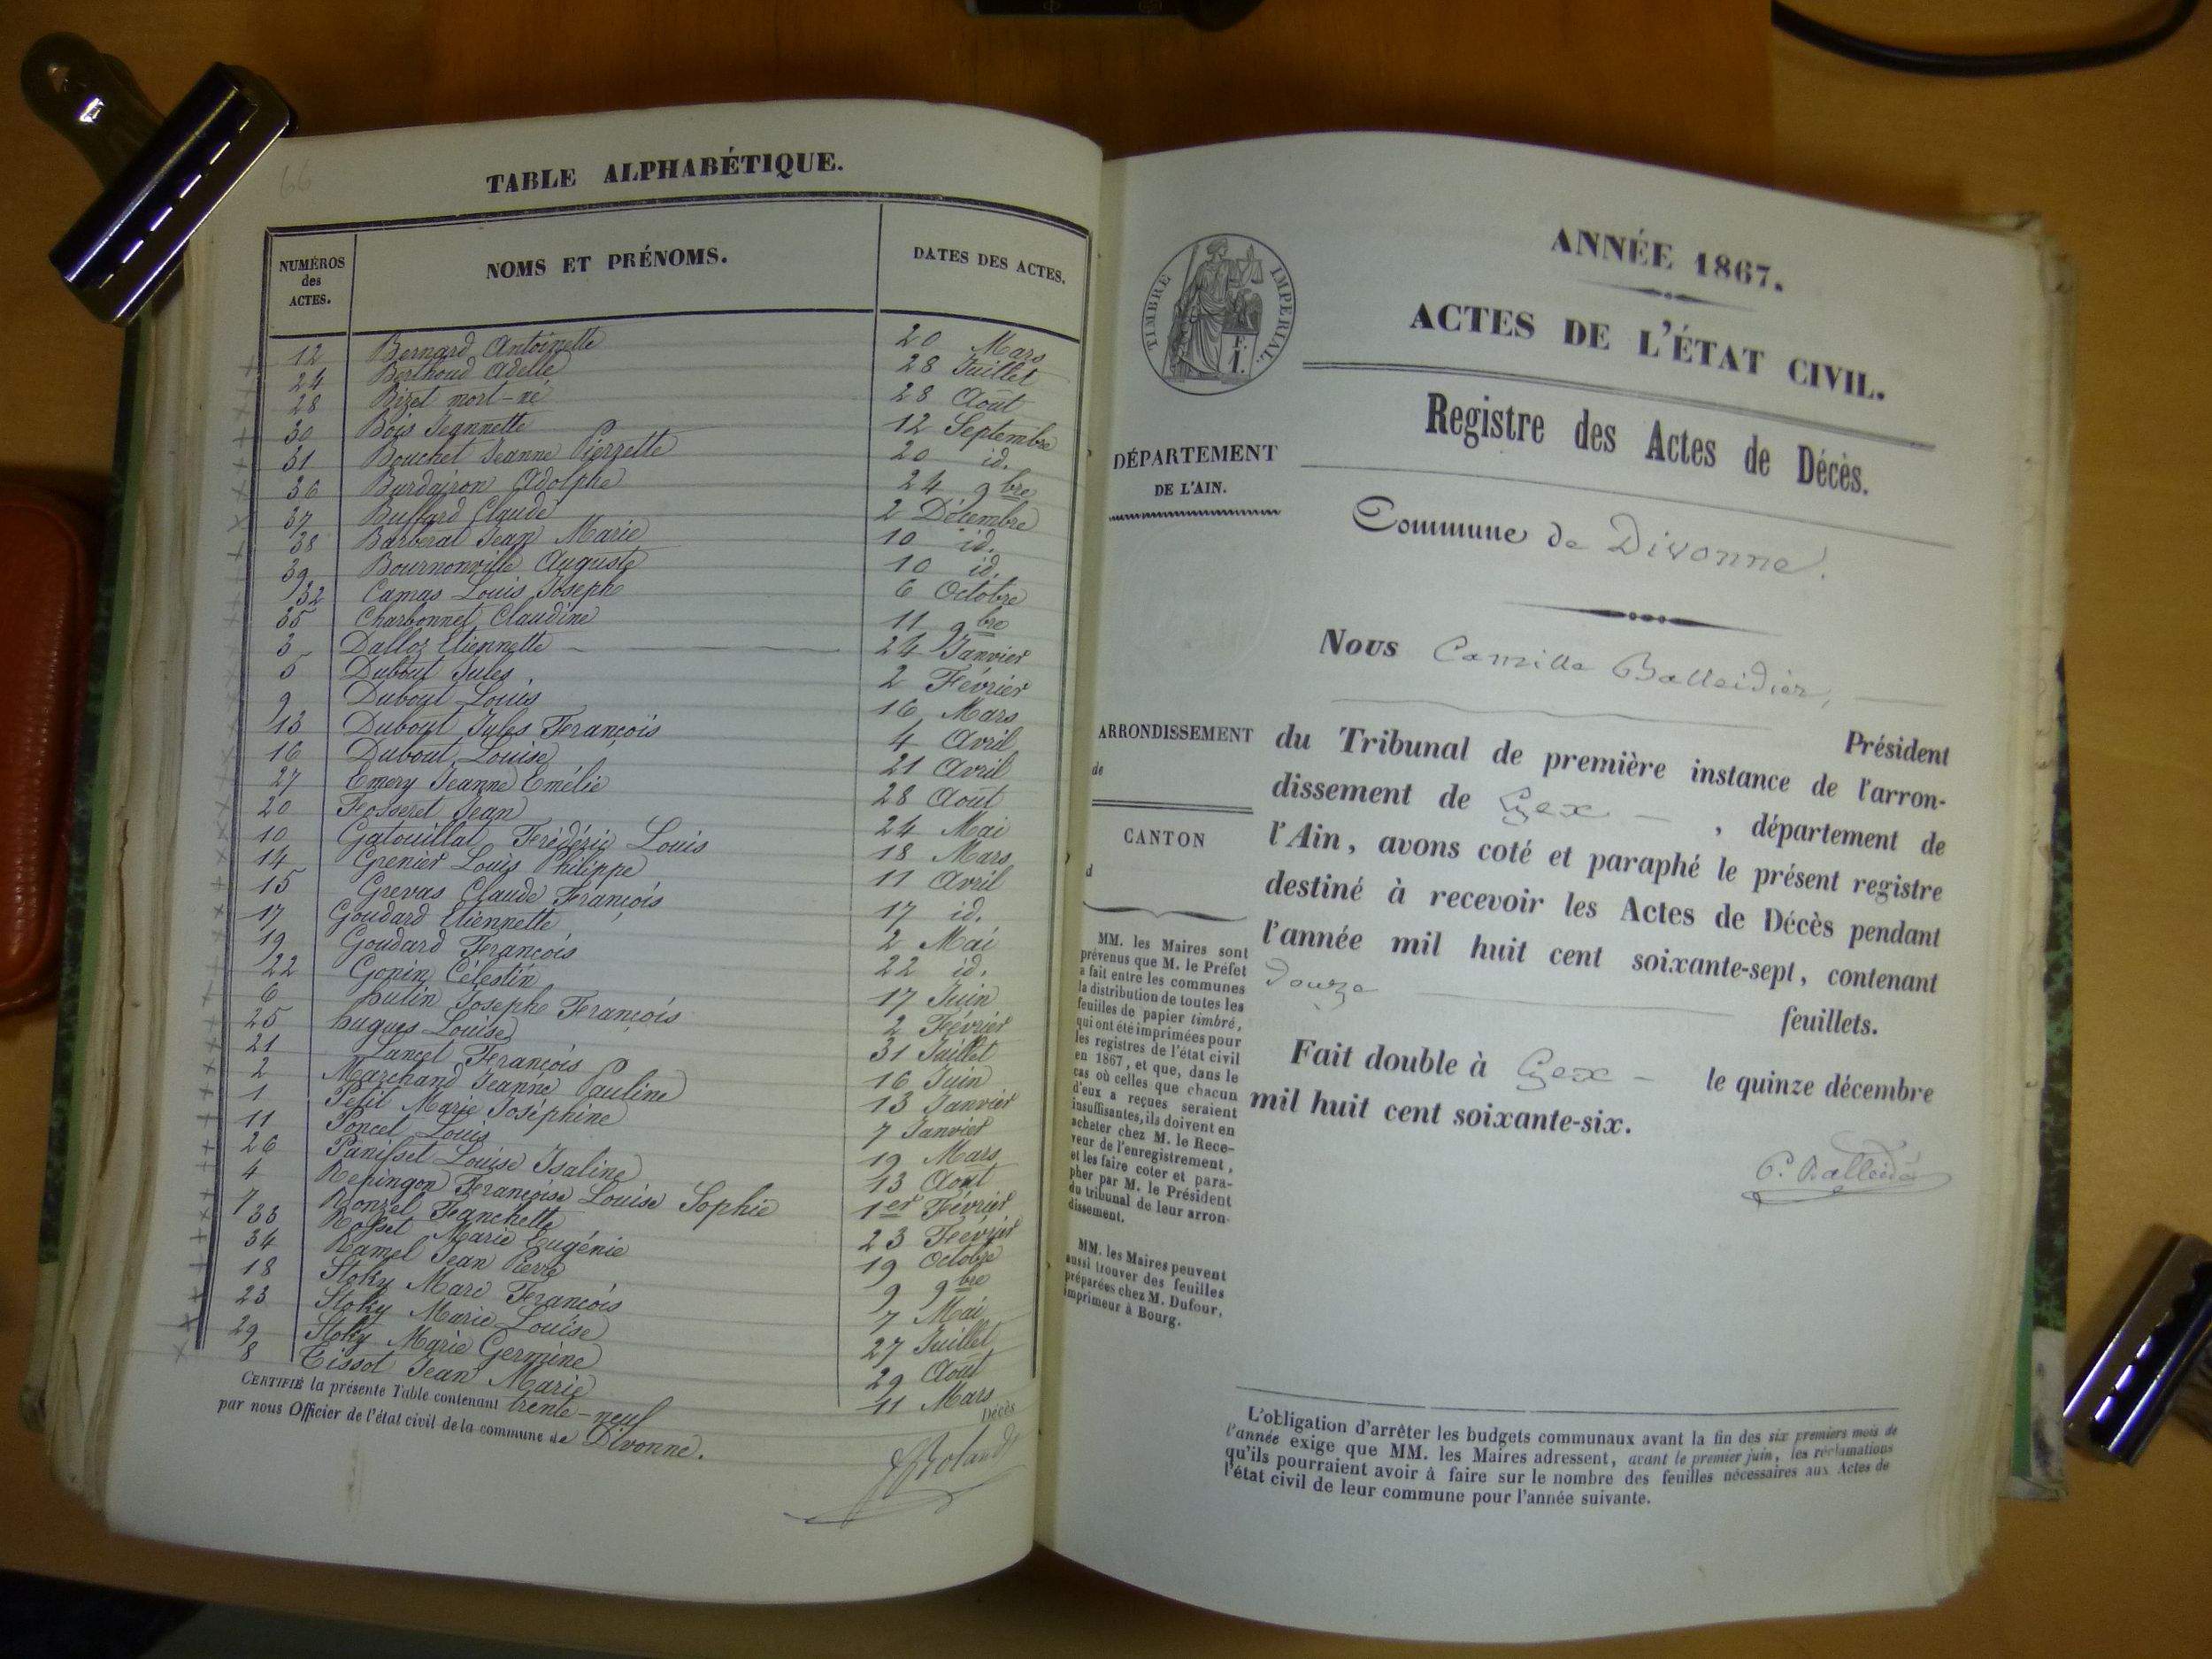 66
TABLE ALPHABÉTIQUE.
NUMÉROS des ACTES. NOMS ET PRÉNOMS. DATES DES ACTES.
12 Bernard Antoinette 20 Mars
24 Berthoud Adelle 28 Juillet
28 Bizet mort-né 28 Août
30 Bois Jeannette 12 Septembre
31 Bouchet Jeanne Pierrette 20 id.
36 Burdairon Adolphe 24 9bre
37 Buffard Claude 2 Décembre
38 Barberat Jean Marie 10 id.
39 Bournonville Auguste 10 id.
32 Camas Louis Joseph 6 Octobre
35 Charbonnet Claudine 11 9bre
3 Dalloz Etiennette 24 Janvier
5 Dubout Jules 2 Février
9 Dubout Louis 16 Mars
13 Dubout Jules François 4 Avril
16 Dubout Louise 21 Avril
27 Emery Jeanne Emélie 28 Août
20 Fosseret Jean 24 Mai
10 Gatouillat Frédéric Louis 18 Mars
14 Grenier Louis Philippe 11 Avril
15 Grevas Claude François 17 id.
17 Goudard Etiennette 2 Mai
19 Goudard François 22 id.
22 Gonin Célestin 17 Juin
6 hutin Joseph François 2 Février
25 hugues Louise 31 Juillet
21 Lancet François 16 Juin
2 Marchand Jeanne Pauline 13 Janvier
1 Petit Marie Joséphine 7 Janvier
11 Poncet Louis 19 Mars
26 Panisset Louise Isaline 13 Août
4 Repingon Françoise Louise Sophie 1er Février
7 Ronzel Franchette 23 Février
33 Rosset Marie Eugénie 19 Octobre
34 Ramel Jean Pierre 9 9bre
18 Stoky Marc François 7 Mai
23 Stoky Marie Louise 27 Juillet
29 Stoky Marie Germine 29 Août
8 Tissot Jean Marie 11 Mars
CERTIFIÉ la présente Table contenant trente-neuf Décès
par nous Officier de l'état civil de la commune de Divonne.
TIMBRE IMPÉRIAL.
ANNÉE 1867.
ACTES DE L'ÉTAT CIVIL.
Registre des Actes de Décès.
DÉPARTEMENT
DE L'AIN.
Commune de Divonne.
Nous Camille Balleidier,
Président
ARRONDISSEMENT
de
CANTON
d
du Tribunal de première instance de l'arron-
dissement de Gex , département de
l'Ain, avons coté et paraphé le présent registre
destiné à recevoir les Actes de Décès pendant
l'année mil huit cent soixante-sept, contenant
Douze
feuillets.
Fait double à Gex le quinze décembre
mil huit cent soixante-six.
C. Balleidier
MM. les Maires sont
prévenus que M. le Préfet
a fait entre les communes
la distribution de toutes les
feuilles de papier timbré,
qui ont été imprimées pour
les registres de l'état civil
en 1867, et que, dans le
cas où celles que chacun
d'eux a reçues seraient
insuffisantes, ils doivent en
acheter chez M. le Rece-
veur de l'enregistrement,
et les faire coter et para-
pher par M. le Président
du tribunal de leur arron-
dissement.
MM. les Maires peuvent
aussi trouver des feuilles
préparées chez M. Dufour,
imprimeur à Bourg.
L'obligation d'arrêter les budgets communaux avant la fin des six premiers mois de
l'année exige que MM. les Maires adressent, avant le premier juin, les réclamations
qu'ils pourraient avoir à faire sur le nombre des feuilles nécessaires aux Actes de
l'état civil de leur commune pour l'année suivante.